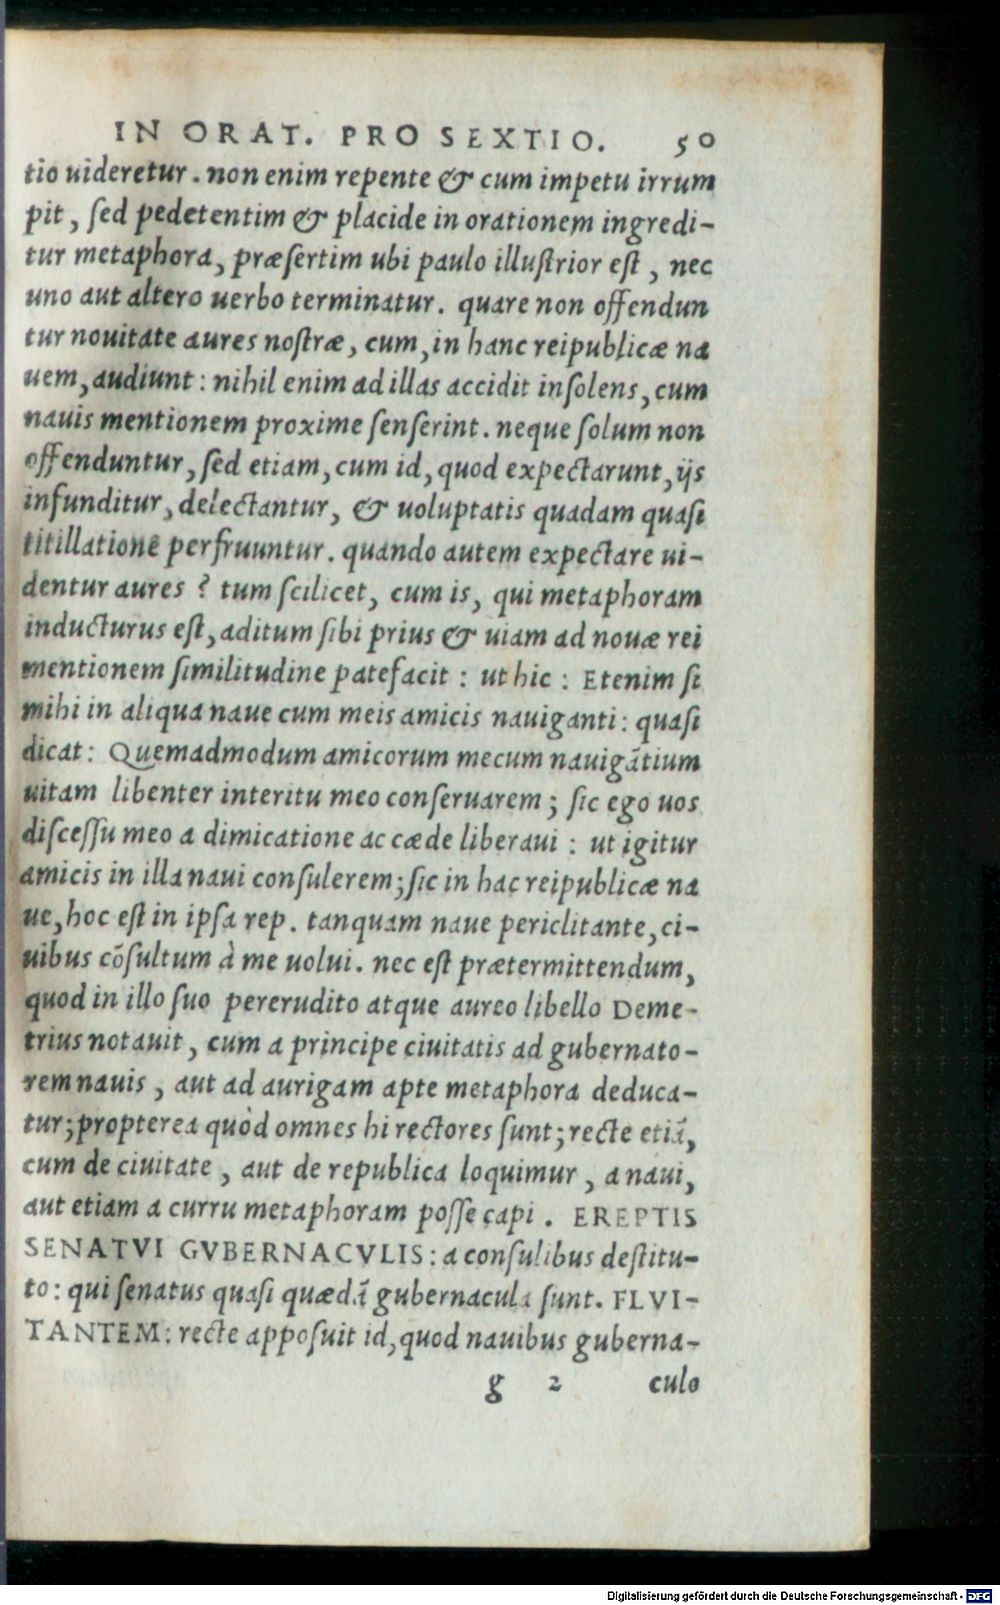 IN ORAT. PRO SEXTIO. 50
tio uideretur. non enim repente & cum impetu irrum
pit, ſed pedetentim & placide in orationem ingredi-
tur metaphora, præſertim ubi paulo illuſtrior eſt, nec
uno aut altero uerbo terminatur. quare non offendun
tur nouitate aures noſtræ, cum, in hanc reipublicæ na
uem, audiunt: nihil enim ad illas accidit inſolens, cum
nauis mentionem proxime ſenſerint. neque ſolum non
offenduntur, ſed etiam, cum id, quod expectarunt, ijs
infunditur, delectantur, & uoluptatis quadam quaſi
titillatione perfruuntur. quando autem expectare ui-
dentur aures? tum ſcilicet, cum is, qui metaphoram
inducturus eſt, aditum ſibi prius & uiam ad nouæ rei
mentionem ſimilitudine patefacit: ut hic: Etenim ſi
mihi in aliqua naue cum meis amicis nauiganti: quaſi
dicat: Quemadmodum amicorum mecum nauigātium
uitam libenter interitu meo conſeruarem; ſic ego uos
diſceſſu meo a dimicatione ac cæde liberaui: ut igitur
amicis in illa naui conſulerem; ſic in hac reipublicæ na
ue, hoc eſt in ipſa rep. tanquam naue periclitante, ci-
uibus cōſultum à me uolui. nec eſt prætermittendum,
quod in illo ſuo pererudito atque aureo libello Deme-
trius notauit, cum a principe ciuitatis ad gubernato-
rem nauis, aut ad aurigam apte metaphora deduca-
tur; propterea quòd omnes hi rectores ſunt; recte etiā,
cum de ciuitate, aut de republica loquimur, a naui,
aut etiam a curru metaphoram poſſe capi. EREPTIS
SENATVI GVBERNACVLIS: a conſulibus deſtitu-
to: qui ſenatus quaſi quædā gubernacula ſunt. FLVI-
TANTEM: recte appoſuit id, quod nauibus guberna-
g 2 culo
Digitalisierung gefördert durch die Deutsche Forschungsgemeinschaft - DFG